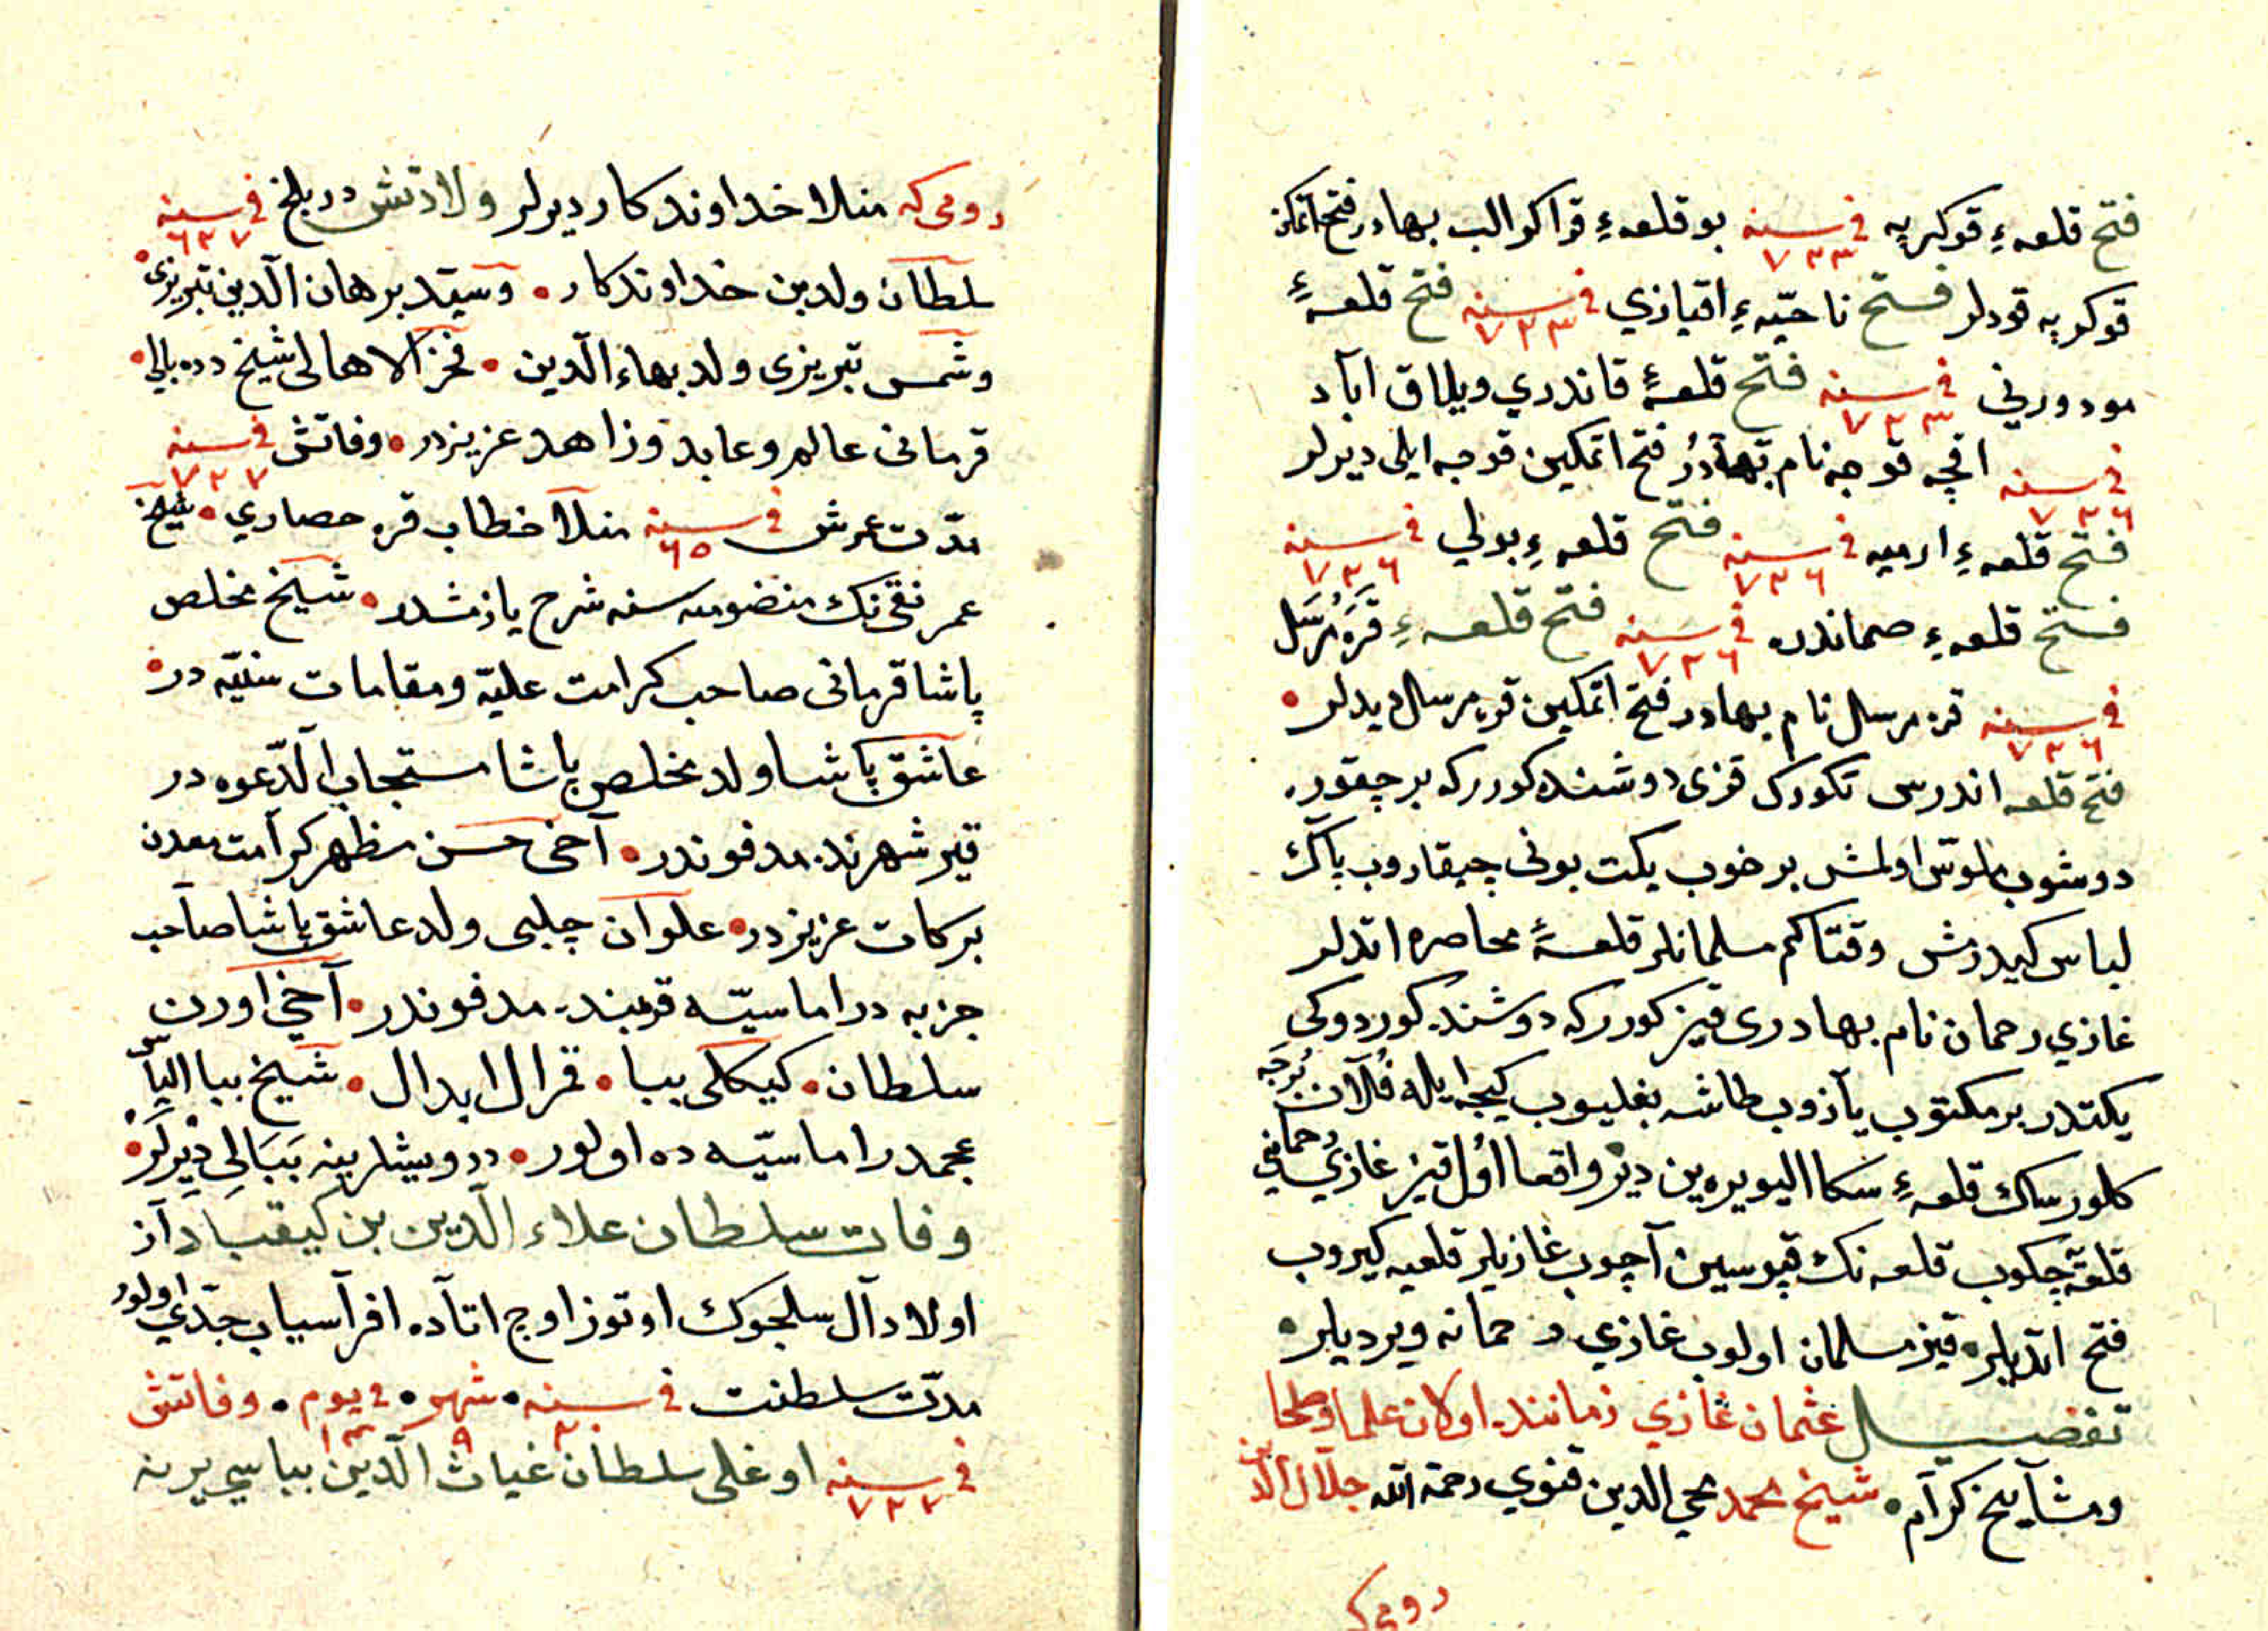 فتح قلعهٔ قوكرپه فی سنه ٧٢٣ بو قلعهٔ قراكوالب بهادر فتح اتمكن
قوكرپه قودلر فتح ناحیّهٔ اقیازي فی سنه ٧٢٣ فتح قلعهٔ
مودورني فی سنه ٧٢٣ فتح قلعهٔ قاندري ویلاق آباد
فی سنه ٧٢٦ اقچه قوجه نام بهادر فتح اتمكین قوجه ایلی دیرلر
فتح قلعهٔ ارمیه فی سنه ٧٢٦ فتح قلعهٔ بولي فی سنه ٧٢٦
فتح قلعهٔ صماندره فی سنه ٧٢٦ فتح قلعهٔ قره مرسل
فی سنه ٧٢٦ قره مرسال نام بهادر فتح اتمكین قره مرسال دیدلر
فتح قلعه اندرس تكورك قزی دوشنده كورركه بر چقوره
دوشوب ملوّس اولمش بر خوب یكت بونی چیقاروب پاك
لباس كیدرمش وقتاكم مسلمانلر قلعهٔ محاصره اتدلر
غازي رحمان نام بهادری قیز كورركه دوشنده كوردوكی
یكتدر بر مكتوب یازوب طاشه بغلیوب كیجه ایله فلان برجه
كلورسك قلعهٔ سكا الیویره‌ین دیر واقعا اول قیز غازي رحمانی
قلعه‌یه چكوب قلعه‌نك قپوسین آچوب غازیلر قلعیه كیروب
فتح اتدیلر قیز مسلمان اولوب غازي رحمانه ویردیلر
تفضیل عثمان غازي زماننده اولان علما وصلحا
ومشایخ كرام شیخ محمد محي الدین قنوي رحمة الله جلال الدین
رومی كه
رومی كه منلا خداوندكار دیرلر ولادتش در بلخ فی سنه ٦٢٧
سلطان ولد بن خداوندكار وسیّد برهان الدین تبریزی
وشمس تبریزی ولد بهاء الدین فخر الاهالی شیخ دده بالی
قرمانی عالم وعابد وزاهد عزیزدر وفاتش فی سنه ٧٢٧
مدّت عمرش فی سنه ٦٥ منلا خطاب قره حصاري شیخ
عمر نقی نك منضومه سنه شرح یازمشدر شیخ مخلص
پاشا قرمانی صاحب كرامت علیّه ومقامات سنیّه در
عاشق پاشا ولد مخلص پاشا مستجاب الدّعوه در
قیر شهرنده مدفوندر آخی حسن مظهر كرامت معدن
بركات عزیزدر علوان چلبی ولد عاشق پاشا صاحب
جزبه در اماسیّه قربنده مدفوندر آخی اورن
سلطان كیكلی ببا قرال ابدال شیخ ببا الیاس
عجمدر اماسیّه ده اولور درویشلرینه ببالی دیرلر
وفات سلطان علاء الدین بن كیقباد از
اولاد آل سلجوك اوتوز اوچ اتاده افراسیاب جدّی اولور
مدّت سلطنت فی سنه ٢٠ شهر ٩ فی یوم ١٣ وفاتش
فی سنه ٧٢٧ اوغلی سلطان غیاث الدین بباسي یرنه